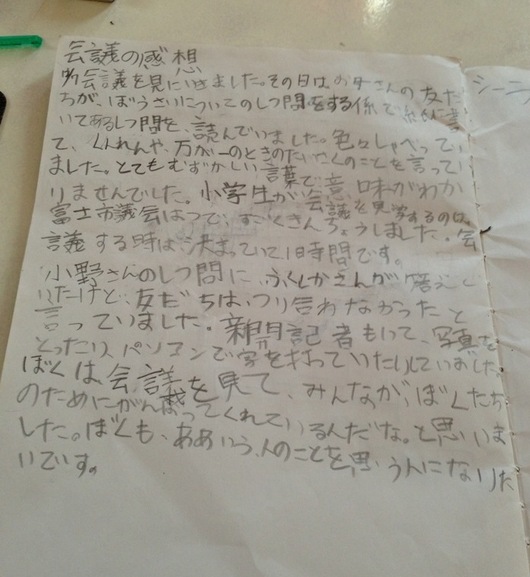 会議の感想
会議を見にいきました。その日はお母さんの友だ
ちが、ぼうさいについてのしつ問をする係で紙に書
いてあるしつ問を、読んでいました。色々しゃべってい
て、くんれんや、万が一のときのたいさくのことを言ってい
ました。とてもむずかしい言葉で意味がわか
りませんでした。小学生が会議を見学するのは、
富士市議会はつで、すごくきんちょうしました。会
議する時は決まっていて1日時間です。
小野さんのしつ問に、ふくしかさんが答えて
いたけど、友だちは、つり合わなかったと
言っていました。新聞記者もいて、写真を
とったり、パソコンで字を打っていたりしていました。
ぼくは会議を見て、みんなが、ぼくたち
のためにがんばってくれているんだな。と思いま
した。ぼくも、ああいう、人のことを思う人になりた
いです。
シーラ